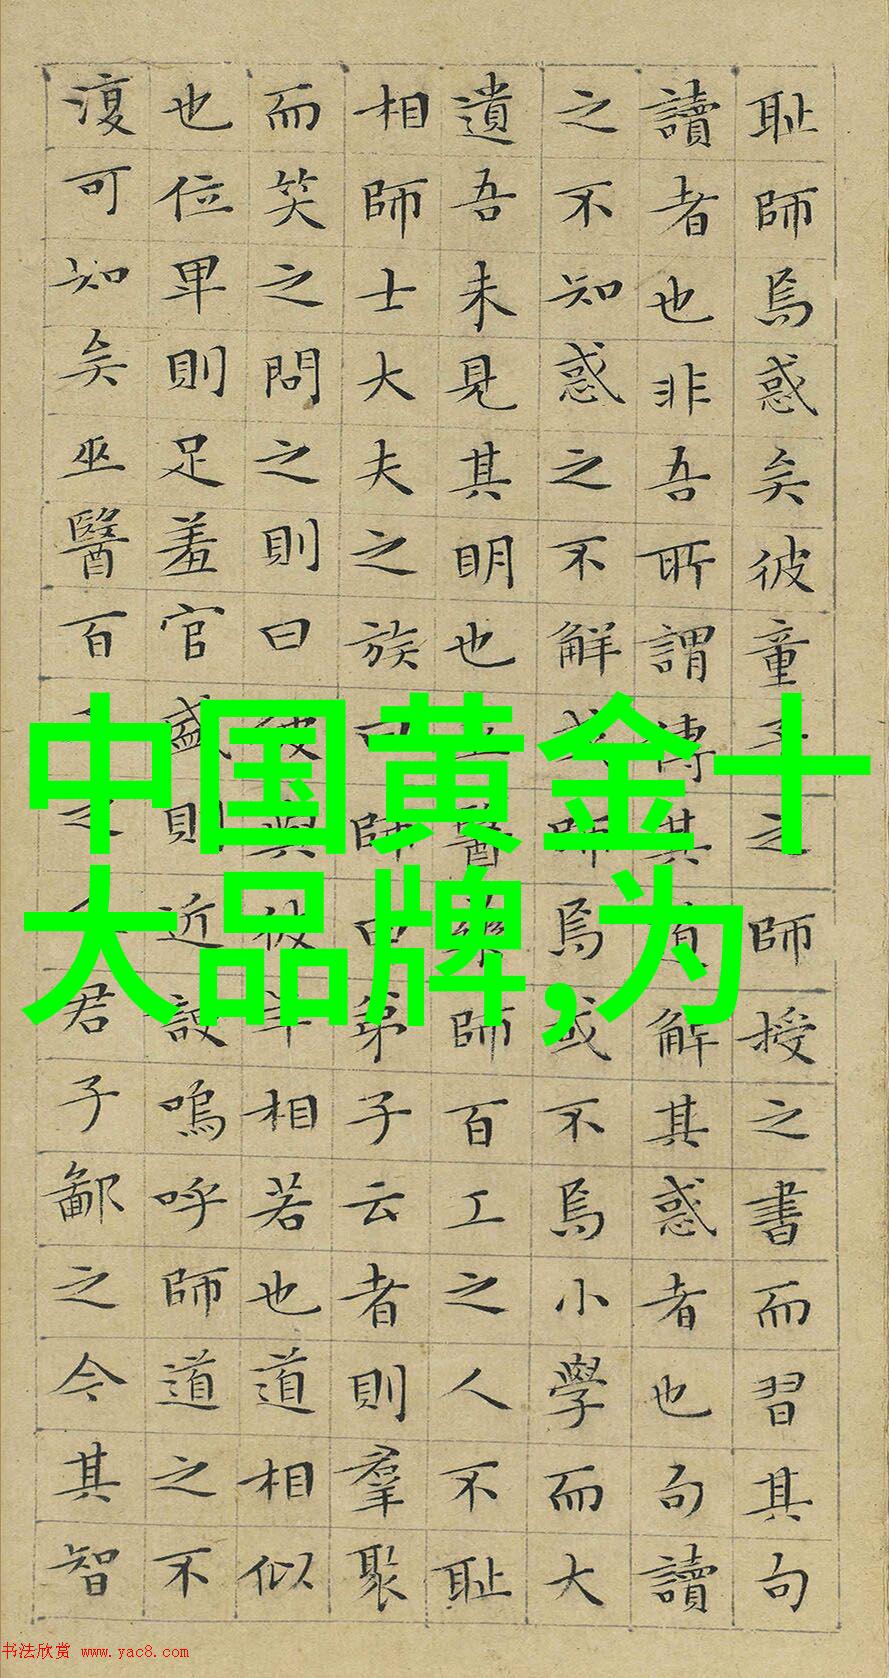 耻師焉惑矣彼童子之師授之書而習其句
讀者也非吾所謂傳其道解其惑者也句讀
之不知惑之不解或師焉或不焉小學而大
遺吾未見其明也巫醫藥師百工之人不耻
相師士大夫之族曰師曰弟子云者則羣聚
而笑之問之則曰彼與彼年相若也道相似
也位卑則足羞官盛則近諛嗚呼師道之不
復可知矣巫醫百之君子鄙之今其智
中国黄金十
大品牌,为
书法欣赏 www.yac8.com